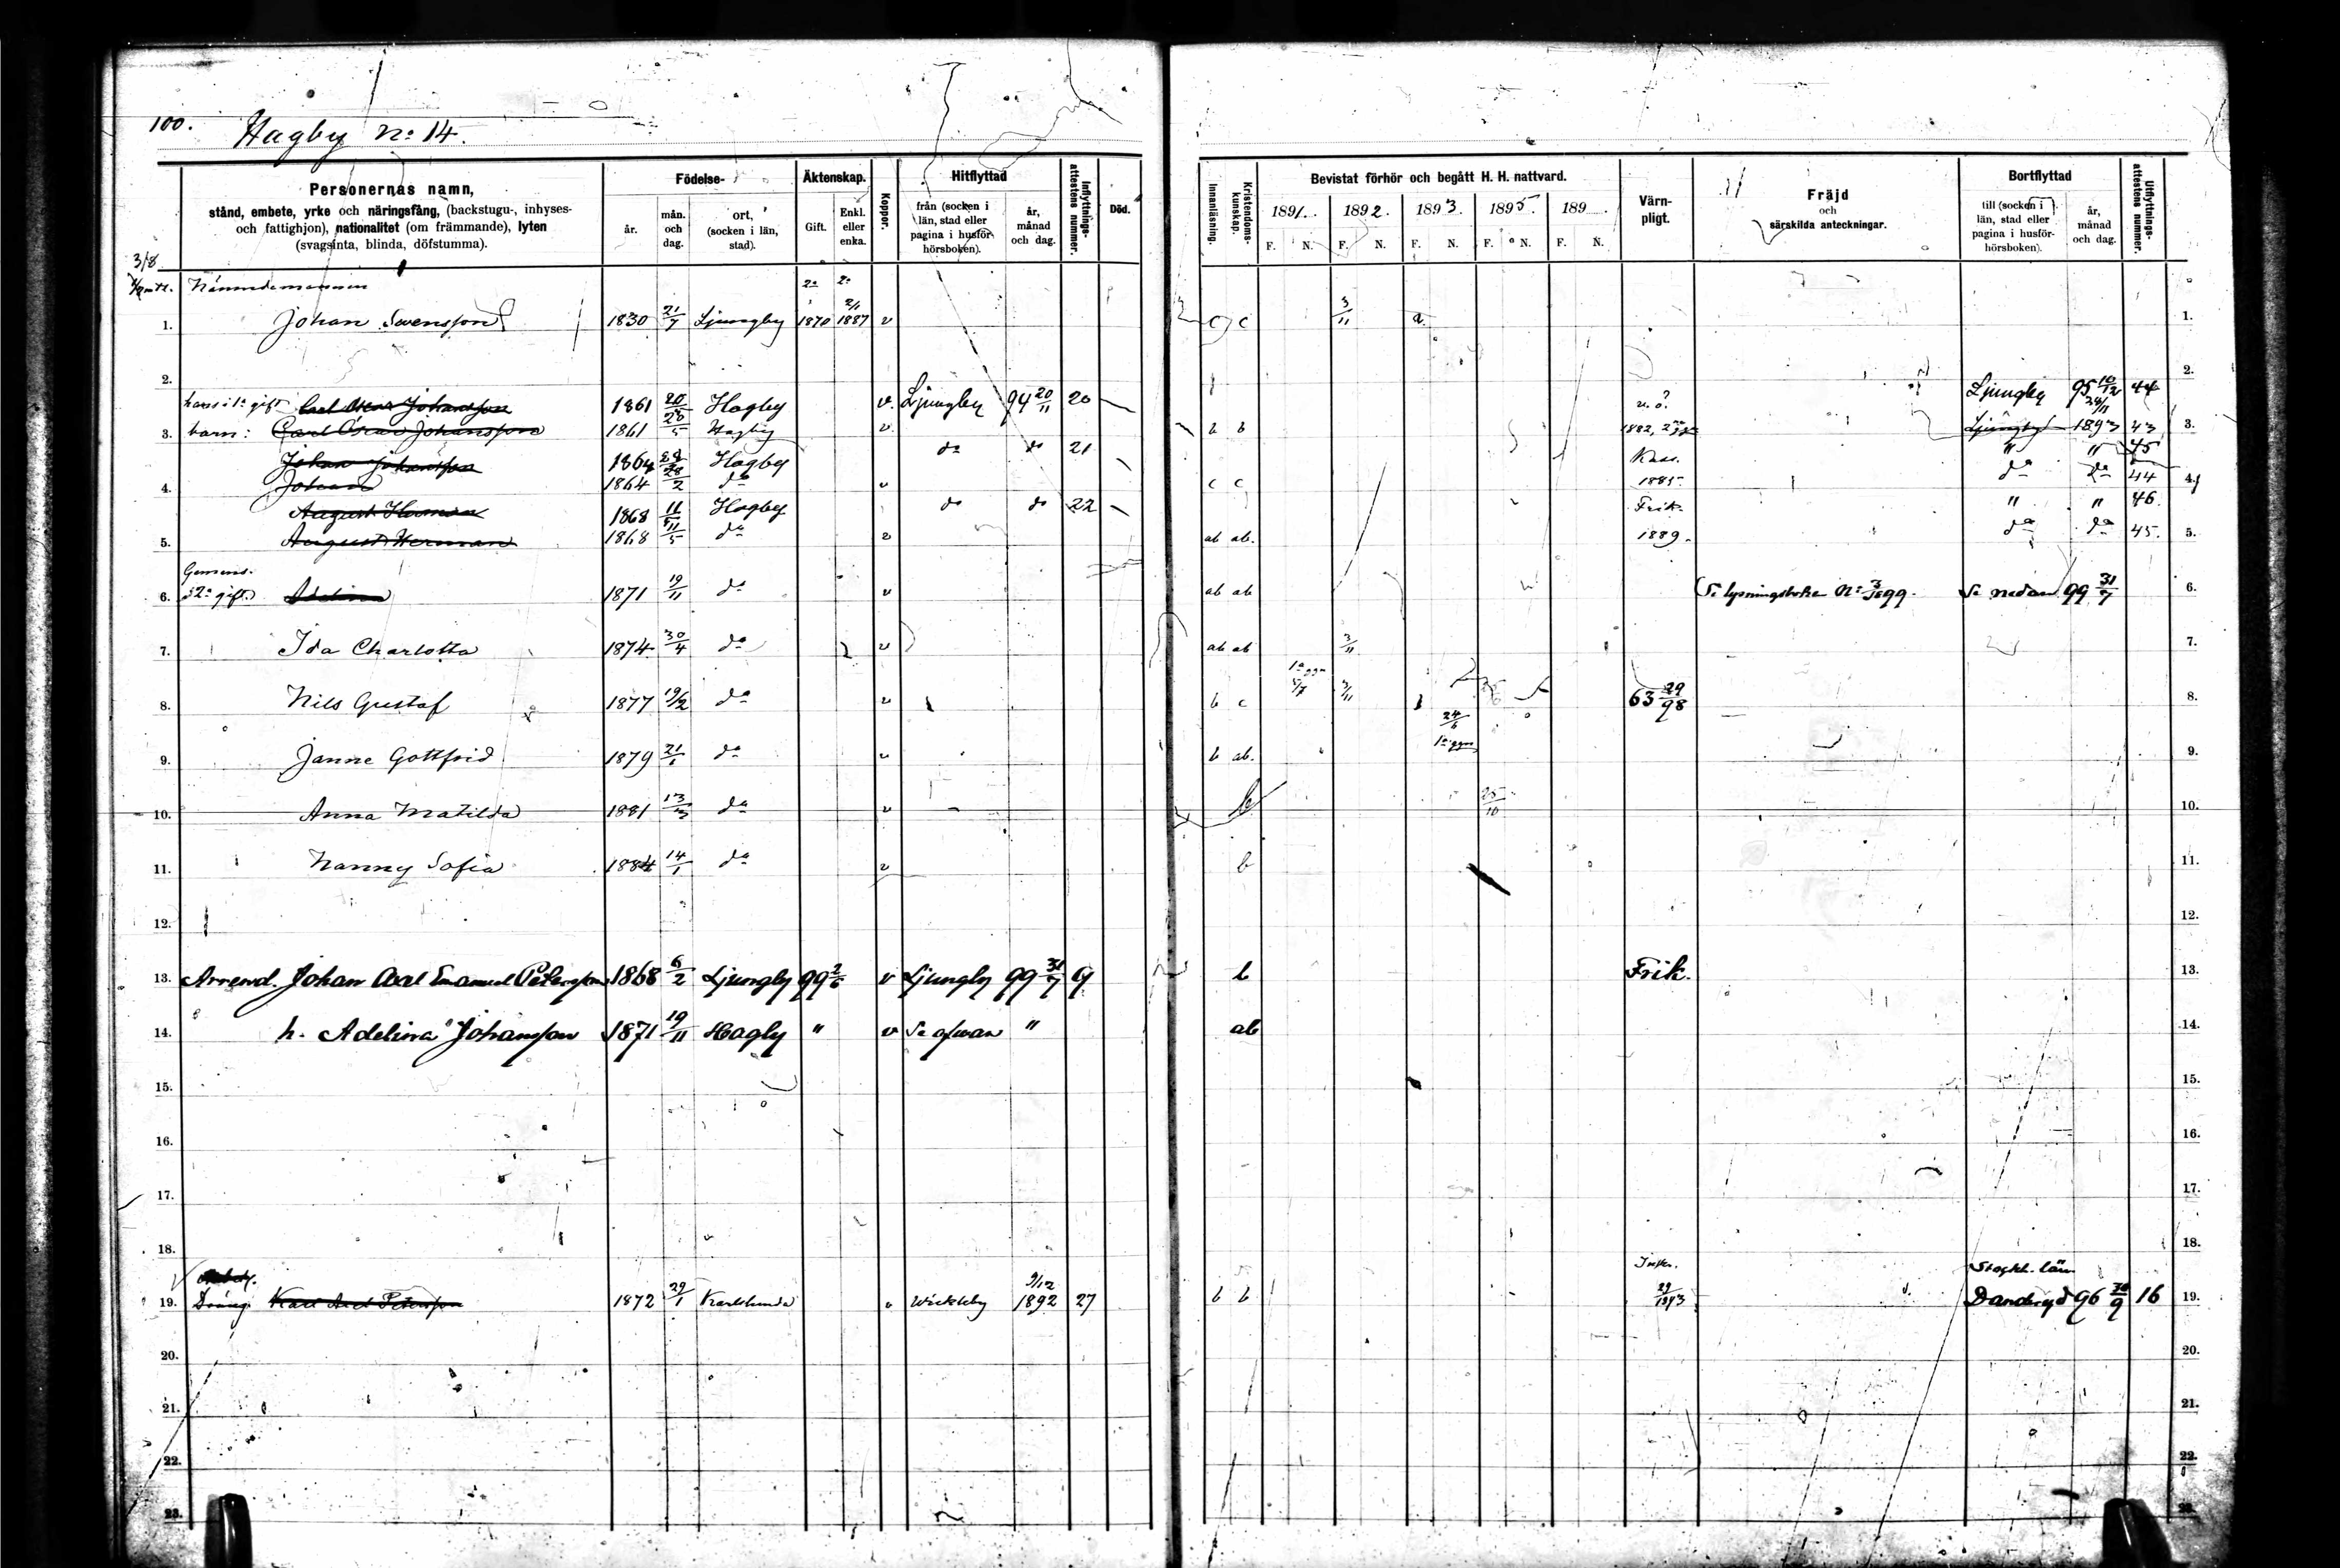 100.
Hagby No: 14.
Personernas namn,
stånd, embete, yrke och näringsfång, (backstugu-, inhyses-
och fattighjon), nationalitet (om främmande), lyten
(svagsinta, blinda, döfstumma).
Födelse-
år.
mån.
och
dag.
ort,
(socken i län,
stad).
Äktenskap.
Gift.
Enkl.
eller
enka.
Koppor.
Hitflyttad
från (socken i
län, stad eller
pagina i husför-
hörsboken).
år,
månad
och dag.
Inflyttnings-
attestens nummer.
Död.
Innanläsning.
Kristendoms-
kunskap.
Bevistat förhör och begått H. H. nattvard.
1891. 1892. 1893. 1895. 189
F. N. F. N. F. N. F. N. F. N.
Värn-
pligt.
Fräjd
och
särskilda anteckningar.
Bortflyttad
till (socken i
län, stad eller
pagina i husför-
hörsboken).
år,
månad
och dag.
Utflyttnings-
attestens nummer.
3/8 mtl. Nämndemannen 2a 2a
1. Johan Svensson 1830 21/7 Ljungby 1870 2/1 1887 v c c 3/11 a 1.
2. 2.
hans i 1a gift Carl Oscar Johansson 1861 20/5 Hagby v. Ljungby 94 20/11 20 v.ö. Ljungby 95 10/12 44
3. barn: Carl Oscar Johansson 1861 Hagby v b b 1882, Ljungby 24/11 1893 43 3.
Johan Johansson 1864 Hagby do do 21 Kass. " " 45
4. Johan 1864 28/2 do v c c 1885 do do 44 4.
August Herman 1868 11/5 Hagby do do 22 Frik. " " 46.
5. August Herman 1868 11/5 do v ab ab. 1889. do do 45. 5.
6. i 2a gift. Adelina 1871 19/11 do v ab ab Se lysningsboken No 3/1899. Se nedan 99 31/7 6.
7. Ida Charlotta 1874 30/4 do v ab ab 3/11 7.
8. Nils Gustaf 1877 19/2 do v b c 1a ggn 5/7 3/11 63 29/98 8.
9. Janne Gottfrid 1879 21/1 do v b ab. 24/6 1a ggn 9.
10. Anna Matilda 1881 13/3 do v b 25/10 10.
11. Nanny Sofia 1884 14/1 do v b 11.
12. 12.
13. Arrend. Johan Axel Emanuel Petersson 1868 6/2 Ljungby 99 2/6 v Ljungby 99 31/7 9 b Frik. 13.
14. h. Adelina Johansson 1871 19/11 Hagby " v Se ofvan " ab 14.
15. 15.
16. 16.
17. 17.
18. 18.
Arbet. 9/12 Inskr. Stockh. län
19. Dräng Karl Axel Petersson 1872 29/1 Karlslunda v Wickleby 1892 27 b b 29/1893 Danderyd 96 30/9 16 19.
20. 20.
21. 21.
22. 22.
23. 23.